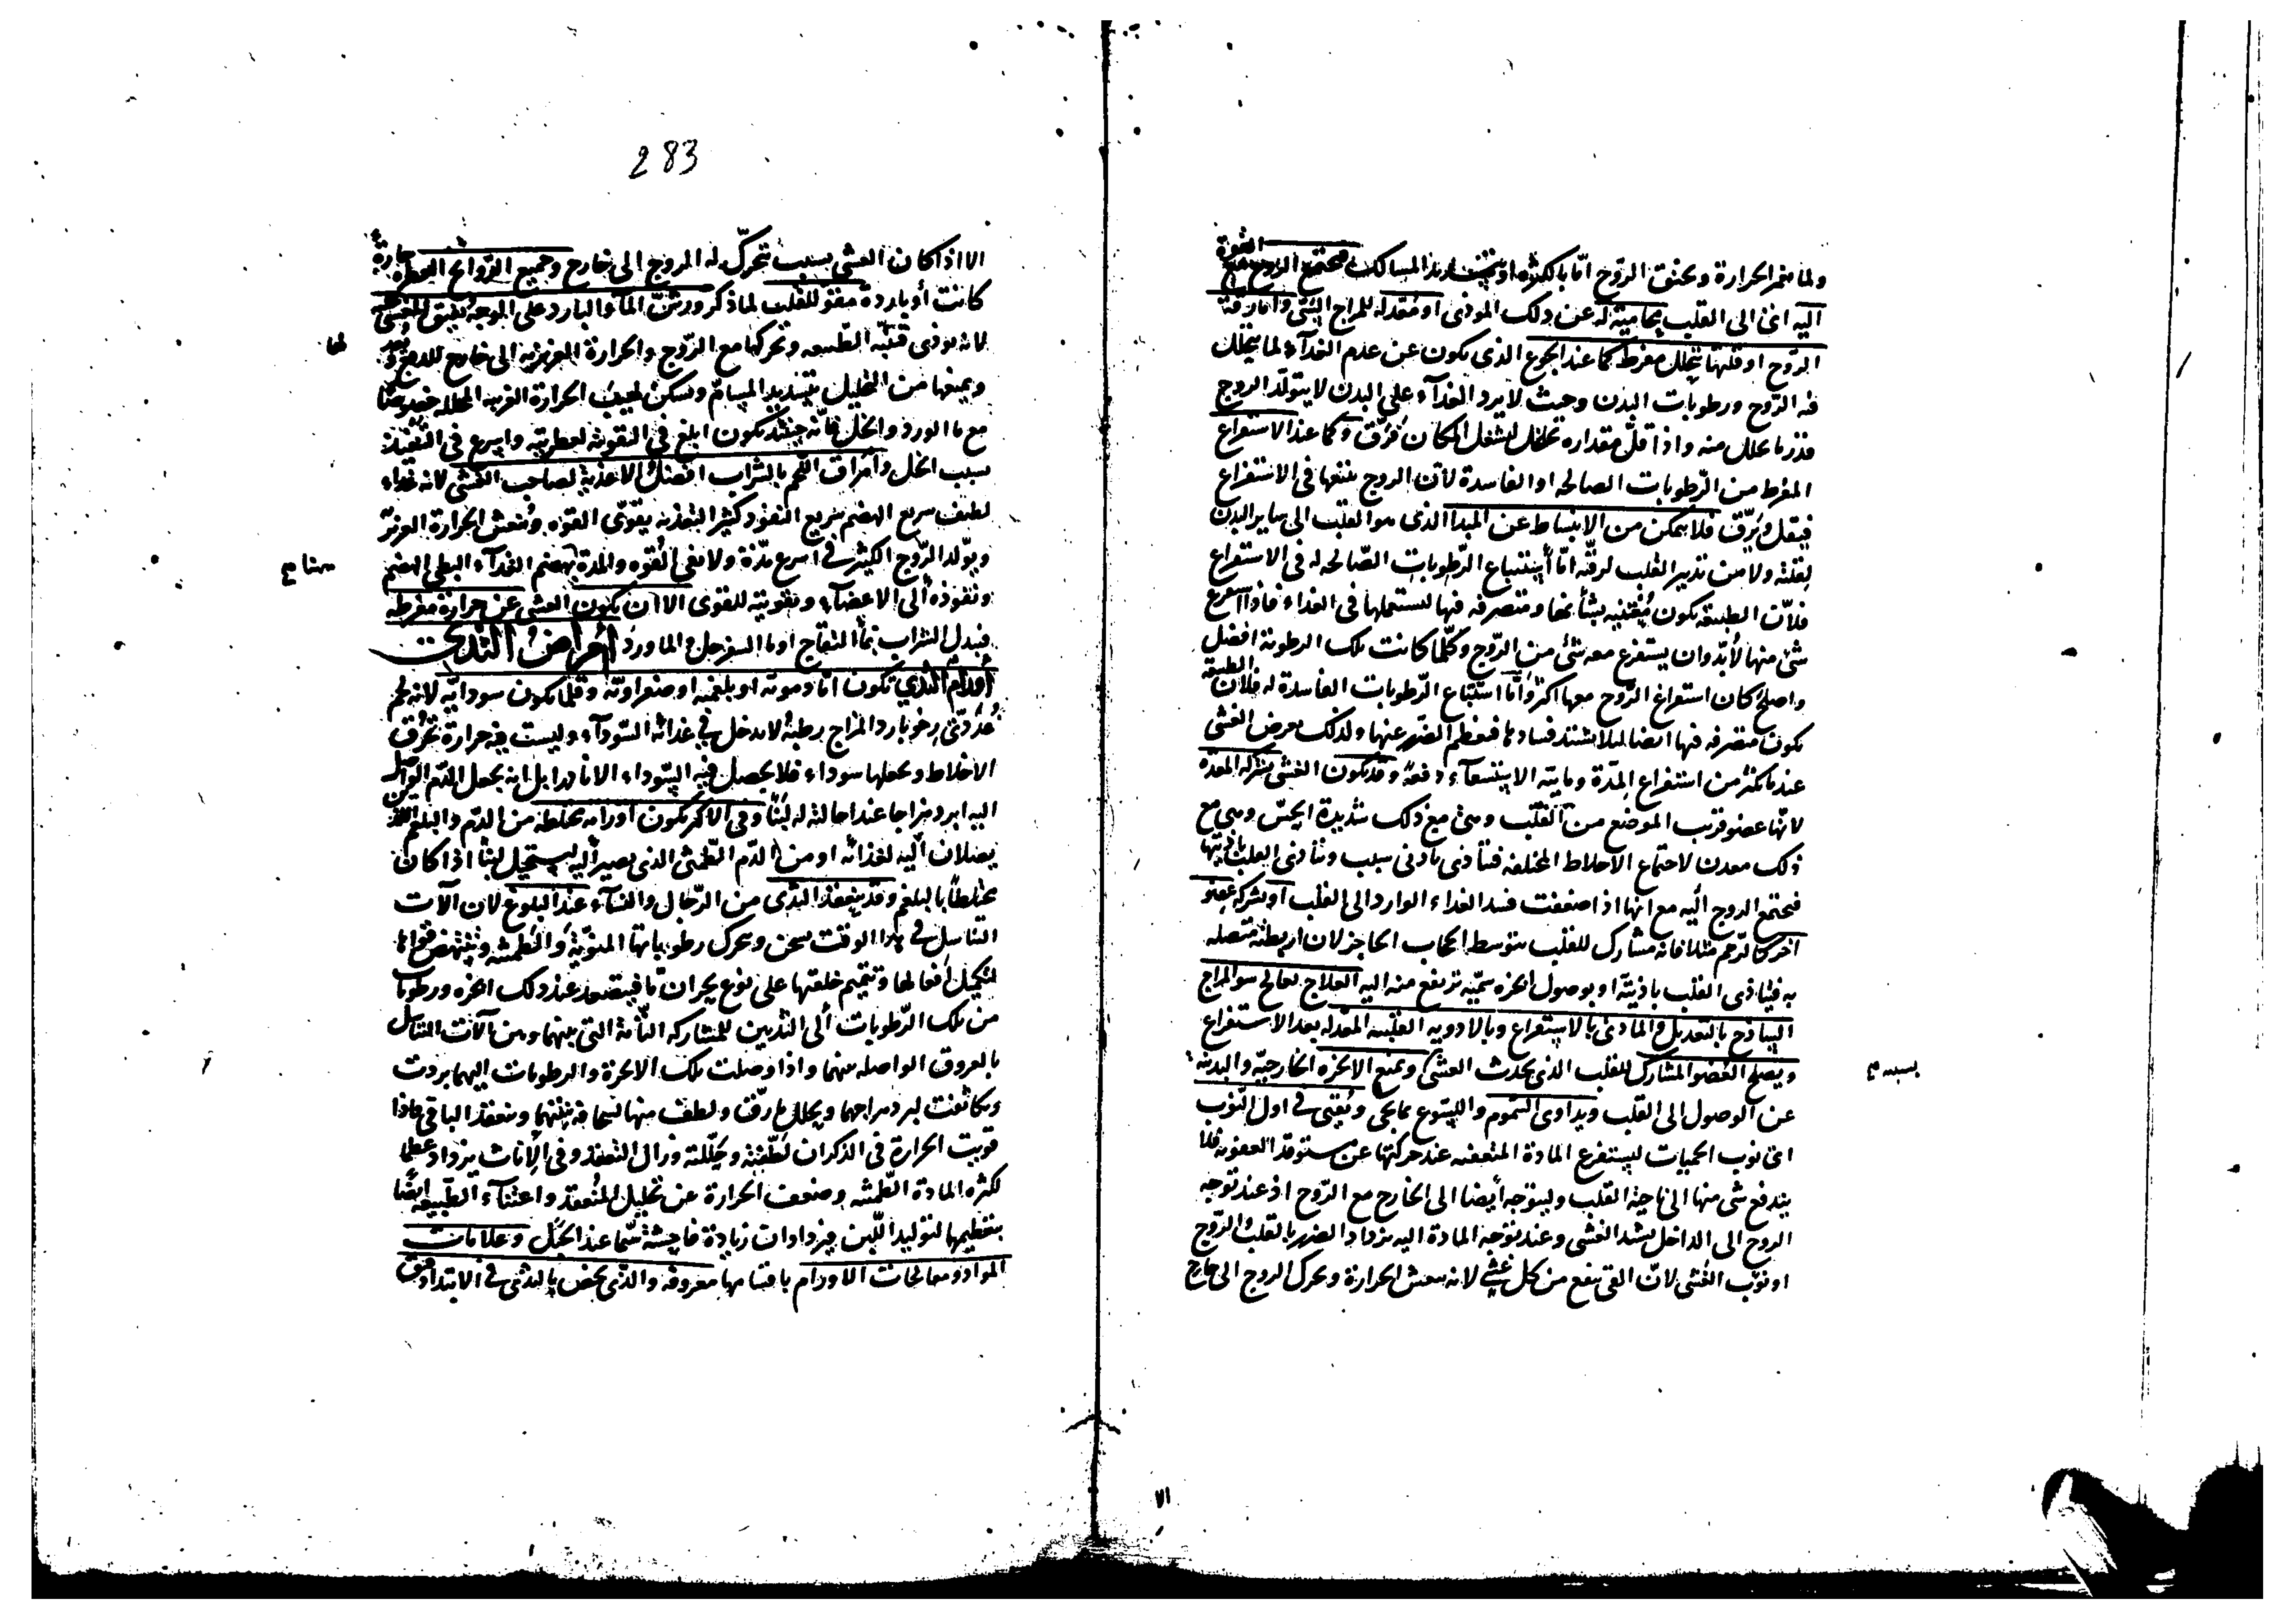 ولما يغمر الحرارة ويخنق الروح امّا بالكثرة او المسالك فيجتمع الروح مع القوة
اليه اعنى الى القلب محامية له عن ذلك الموذى او مفقد له للمزاج وامّا رقة
الروح او قلتها بتحلل مفرط كما عند الجوع الذى يكون عن عدم الغذآء لما يتحلل
فيه الروح ورطوبات البدن وحيث لا يرد الغذآء على البدن لا يتولد الروح
قدر ما تحلل منه واذا قلّ مقداره تخلخل لشغل المكان فرقّ وكما عند الاستفراغ
المفرط من الرطوبات الصالحه او الفاسدة لان الروح يتبعها فى الاستفراغ
فيقل ويرقّ فلا يتمكن من الانبساط عن المبدأ الذى هو القلب الى ساير البدن
لقلته ولا من تدبير القلب لرقته امّا استتباع الرطوبات الصالحه له فى الاستفراغ
فلانّ الطبيعة يكون معتنية بشأنها ومتصرفه فيها لتستعملها فى الغذاء فاذا استفرغ
شئ منها لا بد وان يستفرغ معه شئ من الروح وكلما كانت تلك الرطوبة افضل
واصلح كان استفراغ الروح معها اكثر وامّا استتباع الرطوبات الفاسدة له فلان الطبيعة
يكون متصرفه فيها ايضا لئلا يشتد فسادها فيعظم الضرر عنها ولذلك يعرض الغشى
عند ما يكثر من استفراغ المدّة ومايّة الاستسقآء دفعةً وقد يكون الغشى بشركه المعدة
لانها عضو قريب الموضع من القلب وهى مع ذلك شديدة الحسّ وهى مع
ذلك معدن لاجتماع الاخلاط المختلفه فتتأذى بادنى سبب ويتأذى القلب باذيتها
فيجتمع الروح اليه مع انها اذا ضعفت فسد الغذاء الوارد الى القلب او بشركه عضو
اخر كالرحم مثلا فانه مشارك للقلب بتوسط الحجاب الحاجز لان اربطته متصله
به فيتأذى القلب باذيته او بوصول ابخره سمّيه ترتفع منه اليه العلاج يعالج سوء المزاج
الساذج بالتعديل والمادى بالاستفراغ وبالادويه القلبيه المعدله بعد الاستفراغ
ويصلح العضو المشارك للقلب الذى يحدث الغشى وتمنع الابخره الخارجيّه والبدنيه
بسببه صح
عن الوصول الى القلب ويداوى السموم واللسوع بما يجى ويقيئ فى اول النوب
اعنى نوب الحميات ليستفرغ المادة المتعفنه عند حركتها عن مستوقد العفونه فلا
يندفع شى منها الى ناحية القلب وليتوجه ايضا الى الخارج مع الروح اذ عند توجه
الروح الى الداخل يشتد الغشى وعند توجه المادة اليه يزداد الضرر بالقلب والروح
او نوب الغشى لانّ القئ ينفع من كل غشى لانه ينعش الحرارة ويحرك الروح الى خارج
الا
283
الا اذا كان الغشى بسبب تحرك له الروح الى خارج وجميع الروايح العطره حارة
كانت أو باردة مقوّ للقلب لما ذكر ورشّ الماء البارد على الوجه يفيق المغشى
لانه يوذى فتنبّه الطبيعه وتحركها مع الروح والحرارة الغريزيه الى خارج للدفع
لها
ويمنعها من التحليل بتسديد المسامّ ويسكن لهيب الحرارة الغريبه المحلله خصوصًا
مع ما الورد والخل فانه حينئذ يكون ابلغ فى التقويه لعطريته واسرع فى التنفيذ
بسبب الخل وأمراق اللحم بالشراب افضل الاغذيه لصاحب الغشى لانه غذاء
لطيف سريع الهضم سريع النفوذ كثير التغذيه يقوّى القوه وينعش الحرارة الغريزيّة
ويولد الروح الكثير فى اسرع مدّة ولا تفى القوه والمدة بهضم الغذآء البطى الهضم
هنا صح
ونفوذه الى الاعضآء وتقويته للقوى الا ان يكون الغشى عن حرارة مفرطه
فيبدل الشراب بماء التفاح او ما السفرجل او الماورد أمراض الثدى
أورام الثدي تكون امّا دمويه او بلغميه او صفراويّه وقلما يكون سوداويّه لانه لحم
غددىّ رخو بارد المزاج رطبه لا يدخل فى غذائه السودآء وليست فيه حرارة تحرق
الاخلاط وتجعلها سوداء فلا يحصل فيه السوداء الا نادرا بل انه يجعل الدم الواصل
اليه ابرد مزاجا عند احالته له لبنًا وفى الاكثر يكون اورامه مختلطه من الدم والبلغم الذين
يصلان اليه لغذائه او من الدم الطمثى الذى يصير اليه ليستحيل لبنًا اذا كان
مختلطًا بالبلغم وقد ينعقد الثدى من الرجال والنسآء عند البلوغ لان آلات
التناسل فى هذا الوقت تسخن وتتحرك رطوباتها المنويّه والطمثيه وتنتهض قواها
لتكميل أفعالها وتتميم خلقتها على نوع بحران ما فيتصعد عند ذلك ابخره ورطوبات
من تلك الرطوبات الى الثديين للمشاركه التامّة التى بينهما وبين آلات التناسل
بالعروق الواصله بينهما واذا وصلت تلك الابخرة والرطوبات اليهما بردت
وتكاثفت لبرد مزاجهما ويحلل ما رقّ ولطف منها وينعقد الباقى فاذا
قويت الحرارة فى الذكران لطّفته وحلّلته وزال التعقد وفى الاناث يزداد عظما
لكثره المادة الطمثيه وضعف الحرارة عن تحليل المنعقد واعتنآء الطبيعه ايضًا
بتعظيمها لتوليد اللبن فيزدادان زيادة فاحشة سيّما عند الحبل وعلامات
المواد ومعالجات الاورام باقسامها معروفه والذى يخص بالثدى فى الابتدا دقيق